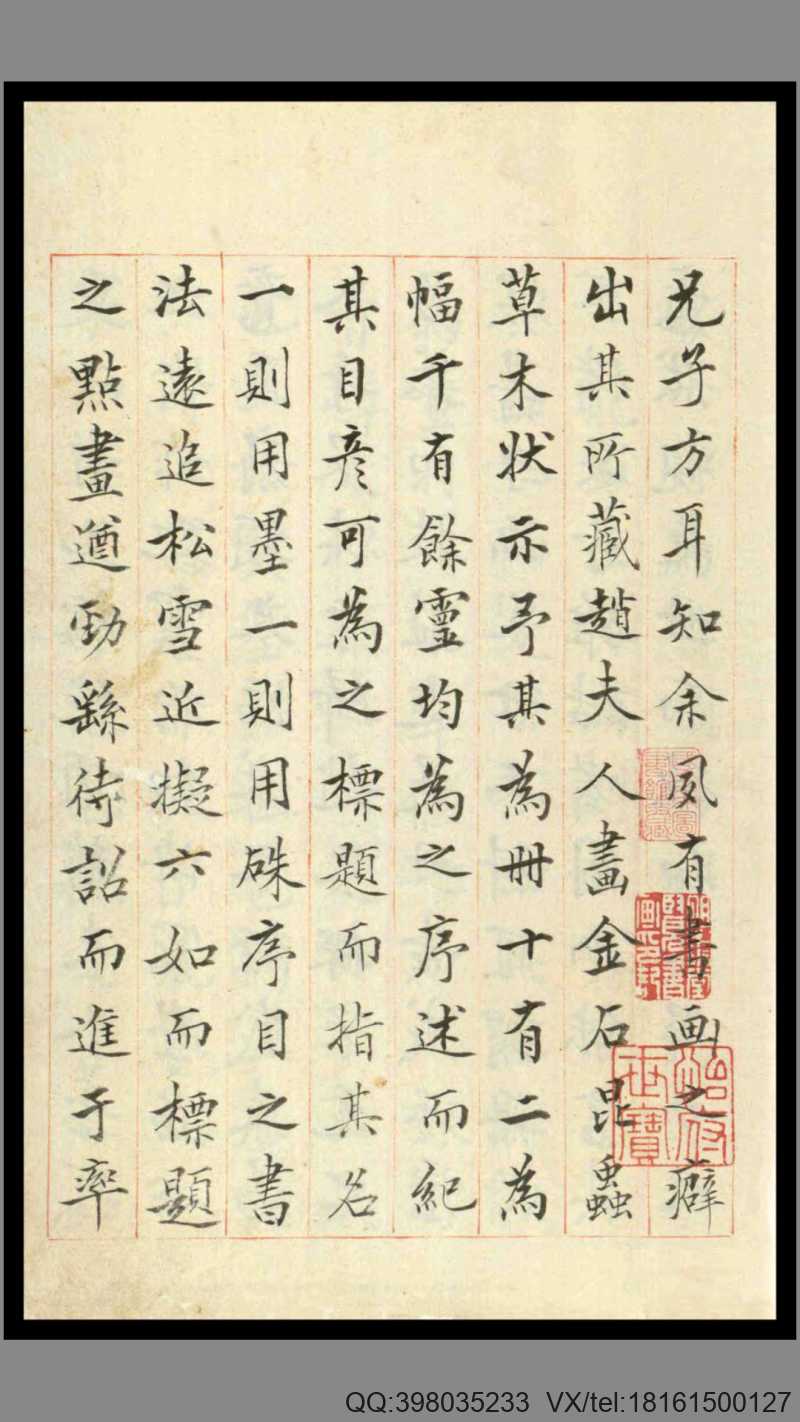 兄子方耳知余夙有書画之癖
出其所藏趙夫人畫金石昆蟲
草木状示予其為冊十有二為
幅千有餘靈均為之序述而紀
其目彦可為之標題而指其名
一則用墨一則用硃序目之書
法遠追松雪近擬六如而標題
之點畫遒勁繇待詔而進于率
QQ:398035233 VX/tel:18161500127